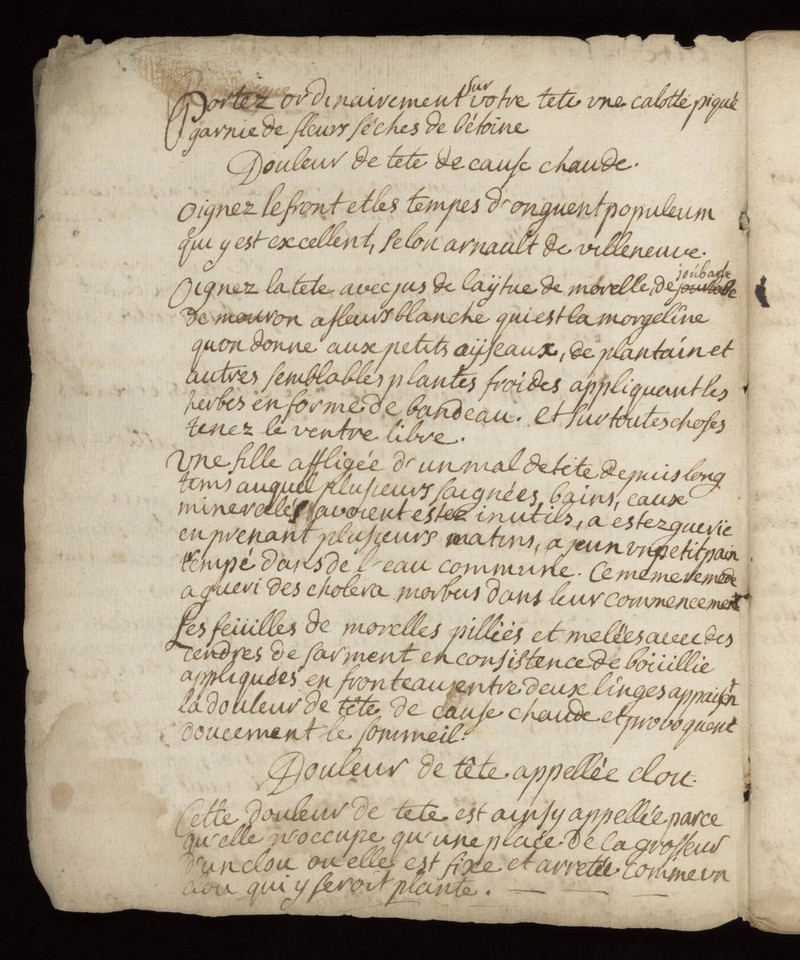 Portez ordinairement sur votre tete une calotte piquée
garnie de fleurs séches de bétoine
Douleur de tete de cause chaude.
Oignez le front et les tempes d'onguent populeum
qui y est excellent, selon arnault de villeneuve.
Oignez la tete avec jus de laÿtue de morelle, de joubarbe
de mouron a fleurs blanche qui est la morgeline
quon donne aux petits oÿseaux, de plantain et
autres semblables plantes froides appliquant les
herbes en forme de bandeau. et sur toutes choses
tenez le ventre libre.
Une fille affligée d'un mal de tete depuis long
tems auquel plusieurs saignées, bains, eaux
minerales avoient estez inutils, a estez guerie
en prenant plusieurs matins, a jeun un petit pain
tempé dans de l'eau commune. Ce meme remede
a gueri des cholera morbus dans leur commencement
Les feüilles de morelles pilliés et melées avec des
cendres de sarment en consistence de boüillie
appliquées en fronteau entre deux linges appaisent
la douleur de tête de cause chaude et provoquent
doucement le sommeil.
Douleur de tête appellée clou.
Cette douleur de tete est ainsy appellée parce
qu'elle n'occupe qu'une place de la grosseur
d'un clou ou elle est fixe et arretée comme un
clou qui y seroit planté.